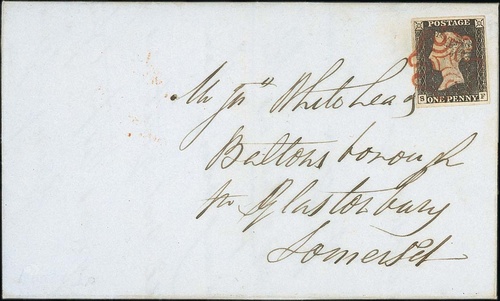 POSTAGE
S ONE PENNY F
Mr Jnº Whitehead
Baltonsborough
nr Glastonbury
Somerset